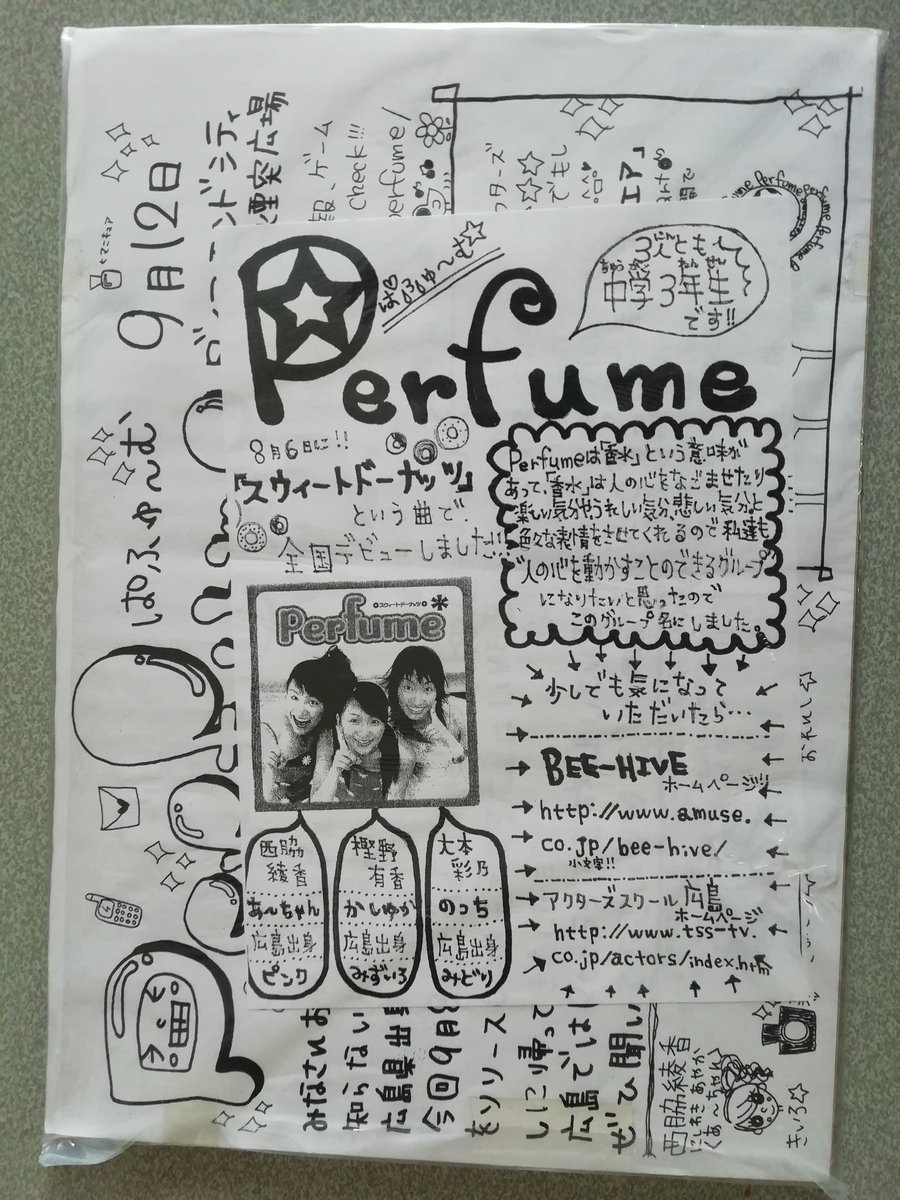 Perfume
ぱ♡ふゅ〜む☆
3人とも
中学3年生
です!!
8月6日に!!
「スウィートドーナッツ」
という曲で、
全国デビューしました!!
Perfumeは「香水」という意味が
あって、「香水」は人の心をなごませたり
楽しい気分やうれしい気分、悲しい気分と
色々な表情をさせてくれるので私達も
人の心を動かすことのできるグループ
になりたいと思ったので
このグループ名にしました。
少しでも気になって
いただいたら…
BEE-HIVE
ホームページ!!
http://www.amuse.
co.jp/bee-hive/
小文字!!
アクターズスクール広島
ホームページ
http://www.tss-tv.
co.jp/actors/index.htm
スウィートドーナッツ
Perfume
西脇
綾香
あ〜ちゃん
広島出身
ピンク
樫野
有香
かしゆか
広島出身
みずいろ
大本
彩乃
のっち
広島出身
みどり
9月12日
ぱふゅ〜む
マニキュア
ンドシティ
煙突広場
ゲーム
check!!!
perfume/
クターズ
でもし
エア」
Perfume Perfume
おれんじ☆
みなさんお
知らない
広島県出身
今回9月8
をリリース
しに帰って
広島では
ぜひ聞い
西脇綾香
にしわき あやか
くあ〜ちゃん〉
きいろ☆